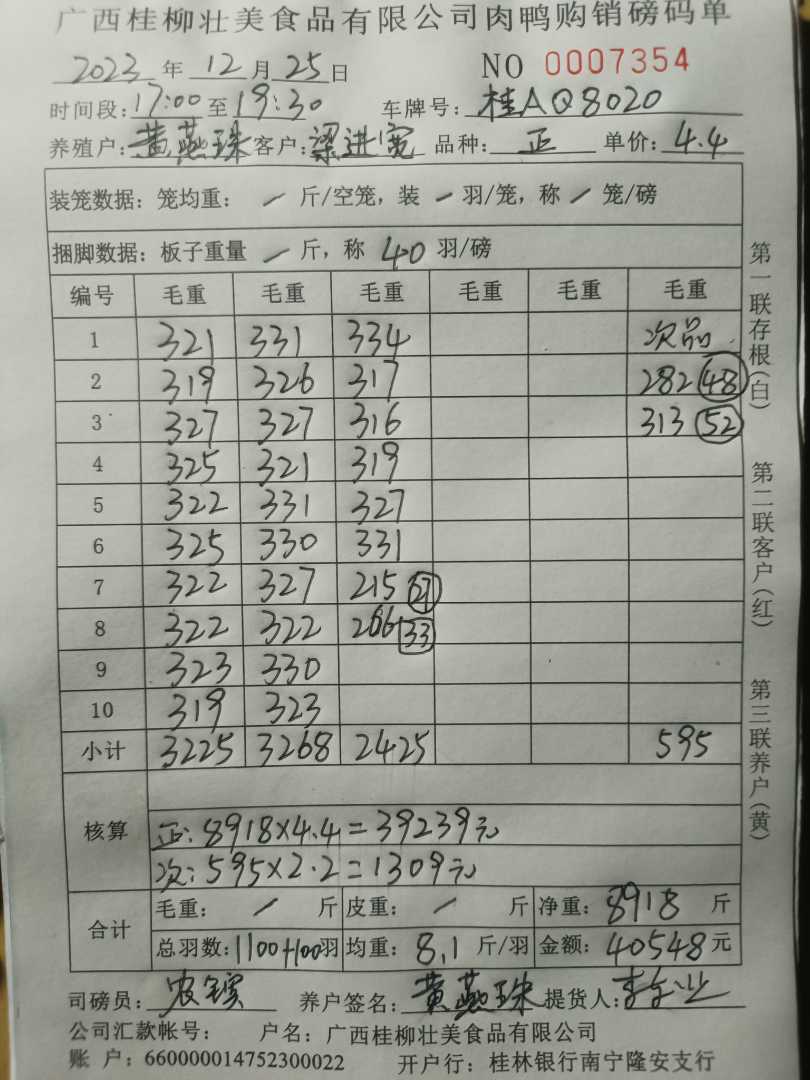 广西桂柳壮美食品有限公司肉鸭购销磅码单
2023年12月25日 NO 0007354
时间段:17:00至19:30 车牌号:桂AQ8020
养殖户:黄燕珠 客户:梁进宽 品种:正 单价:4.4
装笼数据:笼均重:/斤/空笼,装/羽/笼,称/笼/磅
捆脚数据:板子重量/斤,称40羽/磅
编号 毛重 毛重 毛重 毛重 毛重 毛重
1 321 331 334 次品
2 319 326 317 282 48
3 327 327 316 313 52
4 325 321 319
5 322 331 327
6 325 330 331
7 322 327 215 27
8 322 322 266 33
9 323 330
10 319 323
小计 3225 3268 2425 595
核算
正:8918×4.4=39239元
次:595×2.2=1309元
合计
毛重:/斤 皮重:/斤 净重:8918斤
总羽数:1100+100羽 均重:8.1斤/羽 金额:40548元
司磅员: 养户签名:黄燕珠 提货人:
公司汇款帐号: 户名:广西桂柳壮美食品有限公司
账户:660000014752300022 开户行:桂林银行南宁隆安支行
第一联存根(白)
第二联客户(红)
第三联养户(黄)